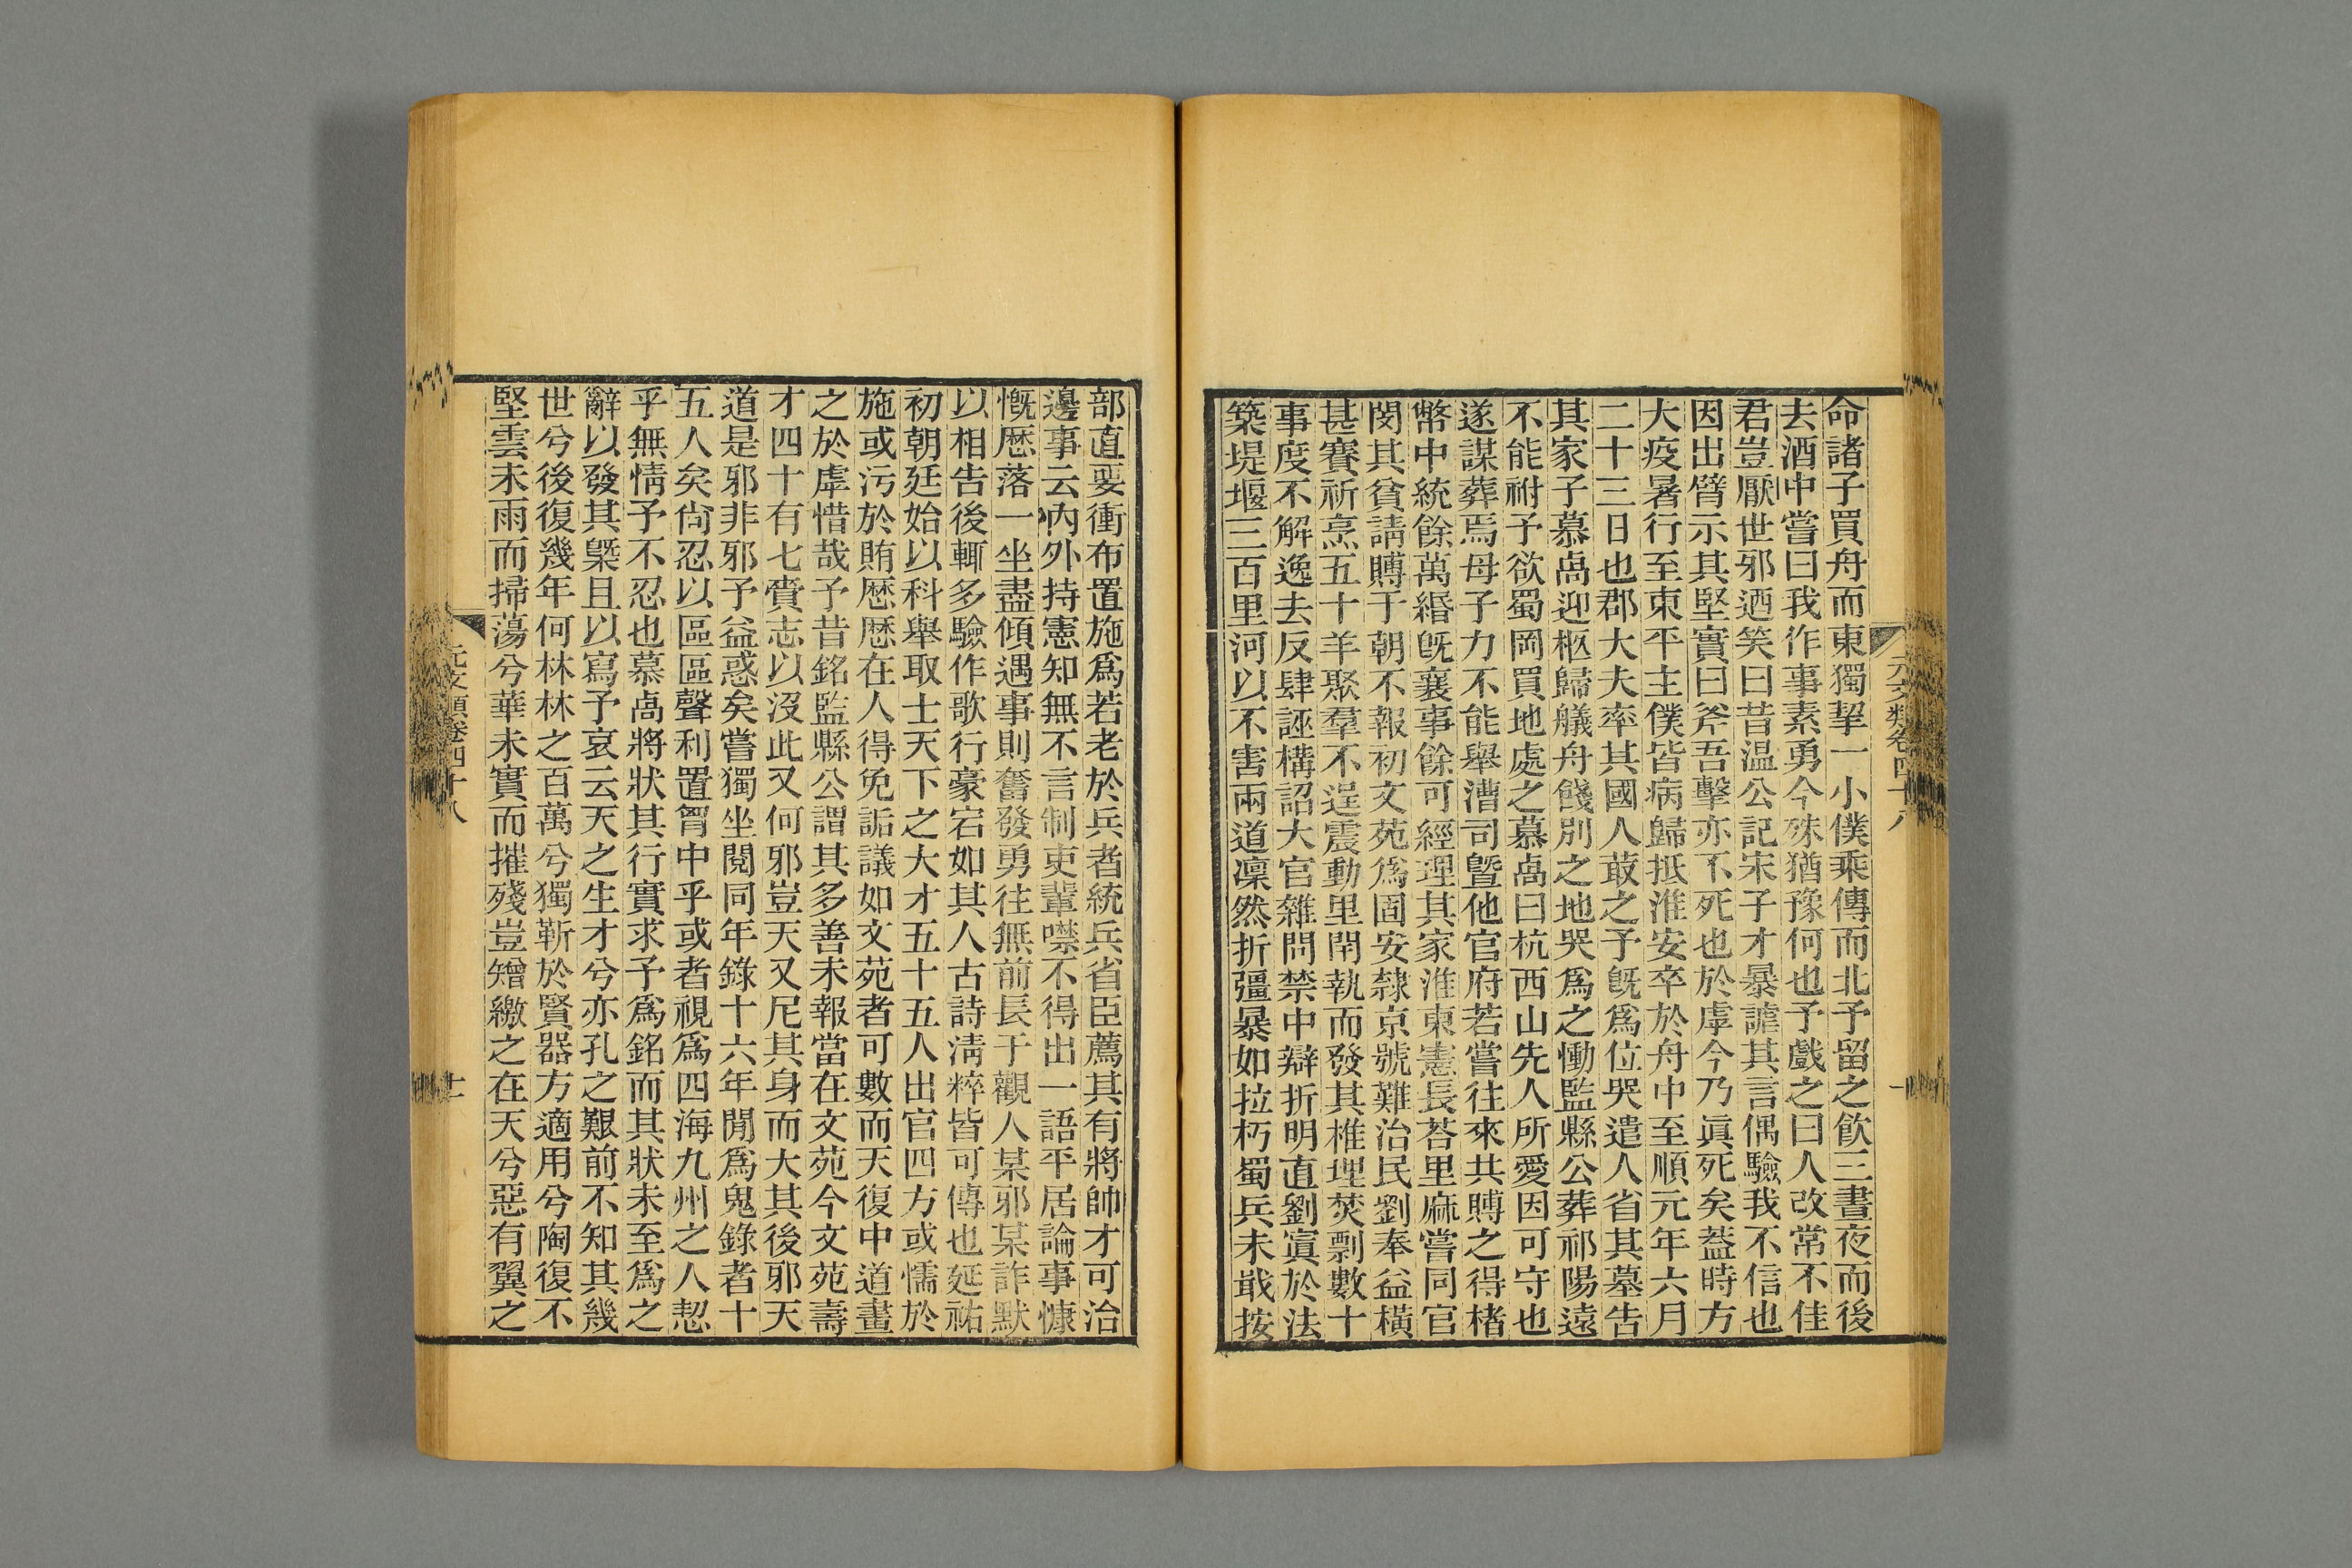 命諸子買舟而東獨挈一小僕乘傳而北予留之飲三晝夜而後
去酒中嘗曰我作事素勇今殊猶豫何也予戲之曰人改常不佳
君豈厭世邪迺笑曰昔温公記宋子才暴謔其言偶驗我不信也
因出臂示其堅實曰斧吾擊亦不死也於虖今乃眞死矣葢時方
大疫暑行至東平主僕皆病歸抵淮安卒於舟中至順元年六月
二十三日也郡大夫率其國人菆之予旣爲位哭遣人省其墓告
其家子慕卨迎柩歸艤舟餞別之地哭爲之慟監縣公葬祁陽遠
不能祔予欲蜀岡買地處之慕卨曰杭西山先人所愛因可守也
遂謀葬焉母子力不能舉漕司曁他官府若嘗往來共賻之得楮
幣中統餘萬緡旣襄事餘可經理其家淮東憲長荅里麻嘗同官
閔其貧請賻于朝不報初文苑爲固安隸京號難治民劉奉益橫
甚賽祈烹五十羊聚羣不逞震動里閈執而發其椎埋焚剽數十
事度不解逸去反肆誣構詔大官雜問禁中辯折明直劉寘於法
築堤堰三百里河以不害兩道凜然折彊暴如拉朽蜀兵未戢按
元文類卷四十八
部直要衝布置施爲若老於兵者統兵省臣薦其有將帥才可治
邊事云內外持憲知無不言制吏輩噤不得出一語平居論事慷
慨歷落一坐盡傾遇事則奮發勇往無前長于觀人某邪某詐默
以相告後輒多驗作歌行豪宕如其人古詩淸粹皆可傳也延祐
初朝廷始以科舉取士天下之大才五十五人出官四方或懦於
施或污於賄歷歷在人得免詬議如文苑者可數而天復中道畫
之於虖惜哉予昔銘監縣公謂其多善未報當在文苑今文苑壽
才四十有七賫志以沒此又何邪豈天又尼其身而大其後邪天
道是邪非邪予益惑矣嘗獨坐閱同年錄十六年閒爲鬼錄者十
五人矣尙忍以區區聲利置胷中乎或者視爲四海九州之人恝
乎無情予不忍也慕卨將狀其行實求予爲銘而其狀未至爲之
辭以發其槩且以寫予哀云天之生才兮亦孔之艱前不知其幾
世兮後復幾年何林林之百萬兮獨靳於賢器方適用兮陶復不
堅雲未雨而掃蕩兮華未實而摧殘豈矰繳之在天兮惡有翼之
元文類卷四十八